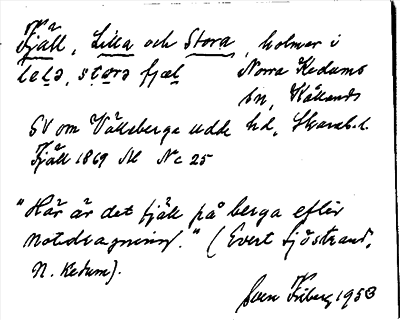 Fjäll, Lilla och Stora, holmar i
lelə, stərə fjəl Norra Kedums
sn, Kållands
SV om Vållsberga udde hd, Skarab. l.
Fjäll 1869 Nc 25
"Här är det fjäll på berga efter
notdragning." (Evert Sjöstrand,
N. Kedum).
Sven Friberg 1953